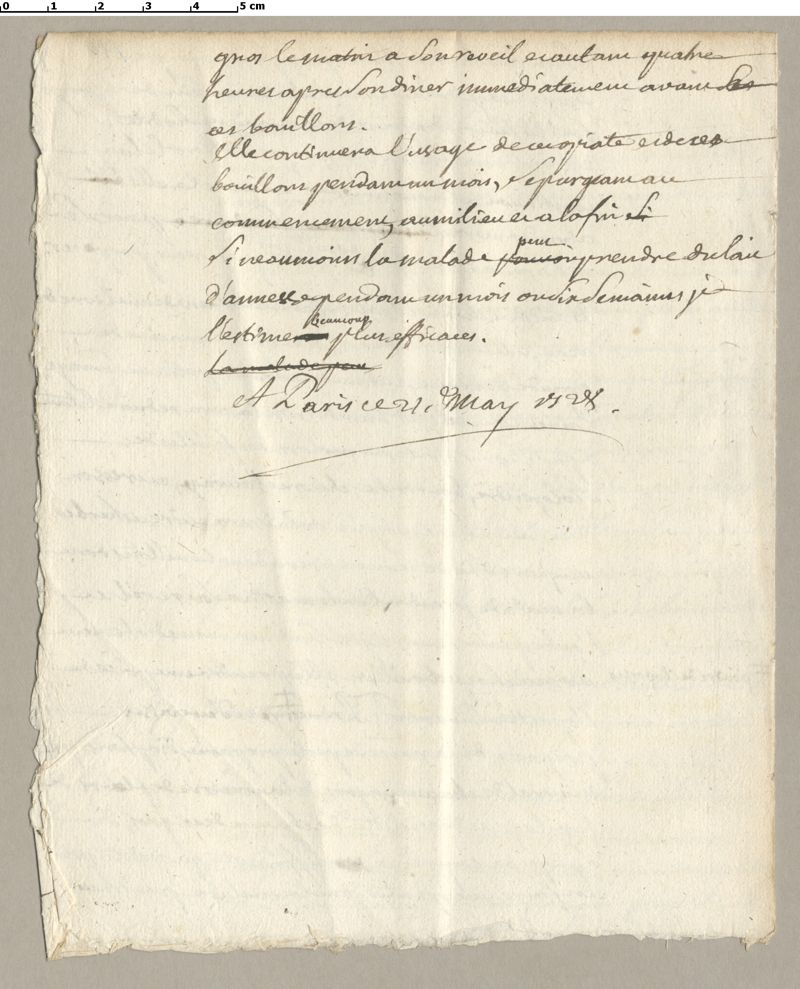 0 1 2 3 4 5 cm
gros le matin a son reveil et autant quatre
heures apres son diner immediatement avant
ces bouillons.
Elle continuera l'usage de cet opiate et de ces
bouillons pendant un mois, se purgeant au
commencement, au milieu et a la fin si
Si neanmoins la malade peut pouvoit prendre du lait
d'annesse pendant un mois ou six semaines je
l'estime beaucoup plus efficaces.
La malade peut
A Paris ce 21. May 1728.